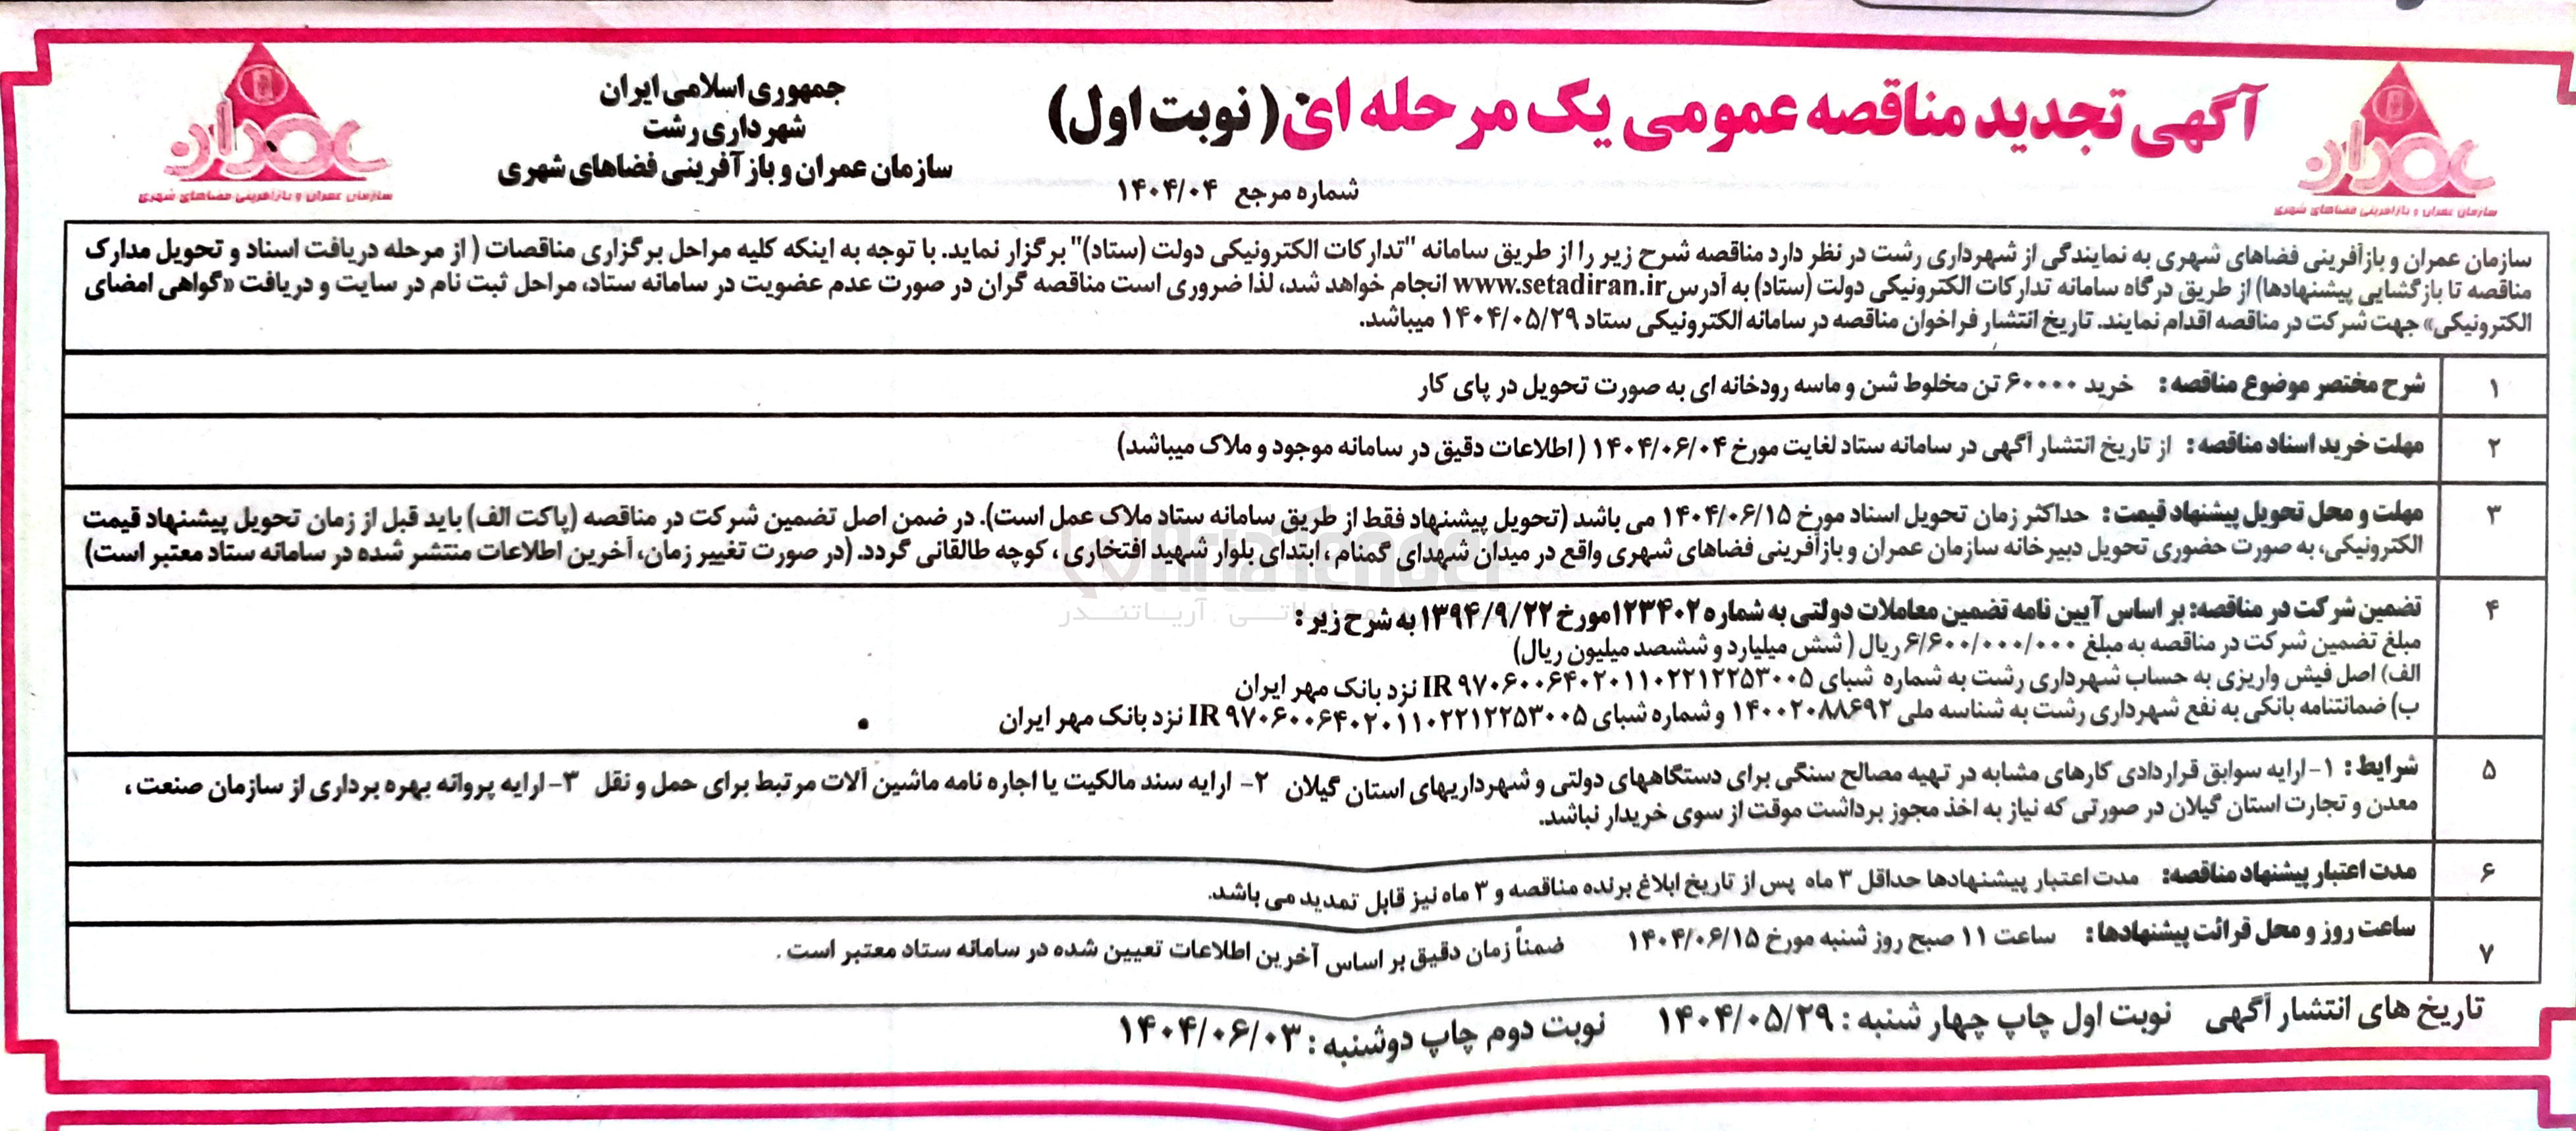 آگهی تجدید مناقصه عمومی یک مرحله ای (نوبت اول)
شماره مرجع ۱۴۰۴/۰۴
جمهوری اسلامی ایران
شهرداری رشت
سازمان عمران و بازآفرینی فضاهای شهری
عمران
سازمان عمران و بازآفرینی فضاهای شهری
عمران
سازمان عمران و بازآفرینی فضاهای شهری
سازمان عمران و بازآفرینی فضاهای شهری به نمایندگی از شهرداری رشت در نظر دارد مناقصه شرح زیر را از طریق سامانه "تدارکات الکترونیکی دولت (ستاد)" برگزار نماید. با توجه به اینکه کلیه مراحل برگزاری مناقصات ( از مرحله دریافت اسناد و تحویل مدارک
مناقصه تا بازگشایی پیشنهادها) از طریق درگاه سامانه تدارکات الکترونیکی دولت (ستاد) به آدرس www.setadiran.ir انجام خواهد شد، لذا ضروری است مناقصه گران در صورت عدم عضویت در سامانه ستاد، مراحل ثبت نام در سایت و دریافت «گواهی امضای
الکترونیکی» جهت شرکت در مناقصه اقدام نمایند. تاریخ انتشار فراخوان مناقصه در سامانه الکترونیکی ستاد ۱۴۰۴/۰۵/۲۹ میباشد.
۱ شرح مختصر موضوع مناقصه: خرید ۶۰۰۰۰ تن مخلوط شن و ماسه رودخانه ای به صورت تحویل در پای کار
۲ مهلت خرید اسناد مناقصه: از تاریخ انتشار آگهی در سامانه ستاد لغایت مورخ ۱۴۰۴/۰۶/۰۴ ( اطلاعات دقیق در سامانه موجود و ملاک میباشد)
۳ مهلت و محل تحویل پیشنهاد قیمت: حداکثر زمان تحویل اسناد مورخ ۱۴۰۴/۰۶/۱۵ می باشد (تحویل پیشنهاد فقط از طریق سامانه ستاد ملاک عمل است). در ضمن اصل تضمین شرکت در مناقصه (پاکت الف) باید قبل از زمان تحویل پیشنهاد قیمت
الکترونیکی، به صورت حضوری تحویل دبیرخانه سازمان عمران و بازآفرینی فضاهای شهری واقع در میدان شهدای گمنام ، ابتدای بلوار شهید افتخاری ، کوچه طالقانی گردد. (در صورت تغییر زمان، آخرین اطلاعات منتشر شده در سامانه ستاد معتبر است)
AriaTender
آریاتندر
۴ تضمین شرکت در مناقصه: بر اساس آیین نامه تضمین معاملات دولتی به شماره ۱۲۳۴۰۲ مورخ ۱۳۹۴/۹/۲۲ به شرح زیر:
مبلغ تضمین شرکت در مناقصه به مبلغ ۶/۶۰۰/۰۰۰/۰۰۰ ریال ( شش میلیارد و ششصد میلیون ریال)
الف) اصل فیش واریزی به حساب شهرداری رشت به شماره شبای IR ۹۷۰۶۰۰۶۴۰۲۰۱۱۰۲۲۱۲۲۵۳۰۰۵ نزد بانک مهر ایران
ب) ضمانتنامه بانکی به نفع شهرداری رشت به شناسه ملی ۱۴۰۰۲۰۸۸۶۹۲ و شماره شبای IR ۹۷۰۶۰۰۶۴۰۲۰۱۱۰۲۲۱۲۲۵۳۰۰۵ نزد بانک مهر ایران
۵ شرایط: ۱- ارایه سوابق قراردادی کارهای مشابه در تهیه مصالح سنگی برای دستگاههای دولتی و شهرداریهای استان گیلان ۲- ارایه سند مالکیت یا اجاره نامه ماشین آلات مرتبط برای حمل و نقل ۳- ارایه پروانه بهره برداری از سازمان صنعت ،
معدن و تجارت استان گیلان در صورتی که نیاز به اخذ مجوز برداشت موقت از سوی خریدار نباشد.
۶ مدت اعتبار پیشنهاد مناقصه: مدت اعتبار پیشنهادها حداقل ۳ ماه پس از تاریخ ابلاغ برنده مناقصه و ۳ ماه نیز قابل تمدید می باشد.
۷ ساعت روز و محل قرائت پیشنهادها: ساعت ۱۱ صبح روز شنبه مورخ ۱۴۰۴/۰۶/۱۵ ضمناً زمان دقیق بر اساس آخرین اطلاعات تعیین شده در سامانه ستاد معتبر است .
تاریخ های انتشار آگهی نوبت اول چاپ چهار شنبه : ۱۴۰۴/۰۵/۲۹ نوبت دوم چاپ دوشنبه : ۱۴۰۴/۰۶/۰۳